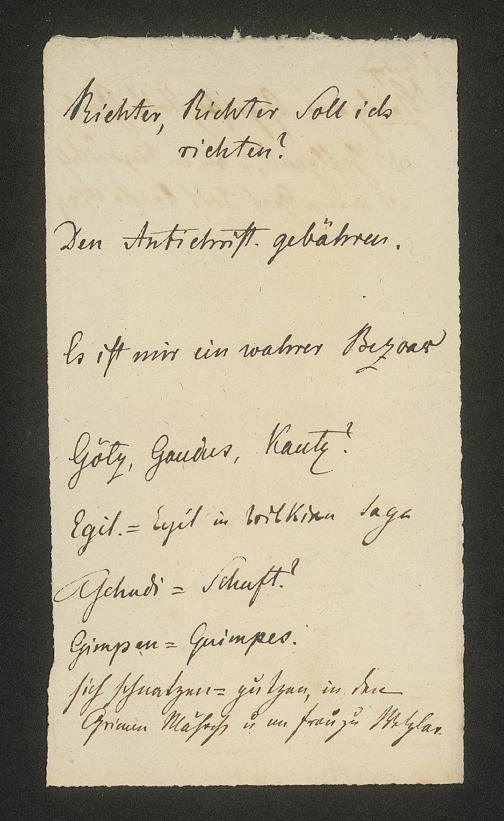 Richter, Richter soll ich
richten?
Den Antichrist. gebähren.
Es ist mir ein wahrer Bezoar
Götz, Gaudus, Kautz?
Egil. = Egil in Wilkina Saga
Tschudi = Schuft?
Gimpen = Guimpes.
sich schnatzen = putzen, in den
Grimm u. zu Wetzlar.